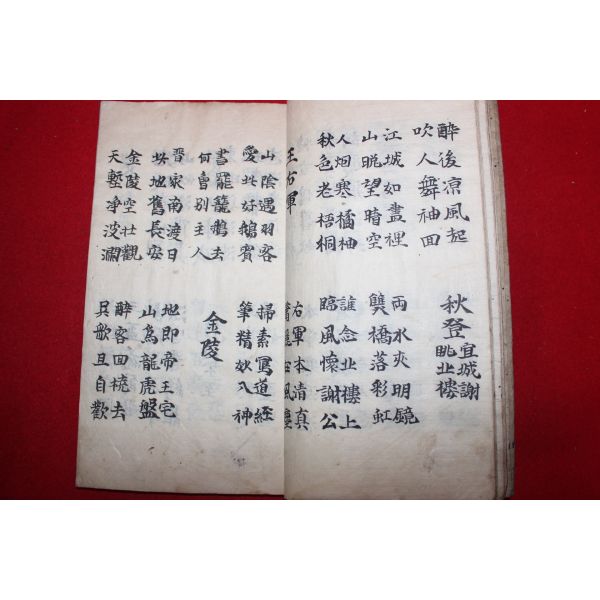 醉後凉風起
吹人舞袖回
秋登
宜城謝
眺北樓
江城如畫裡
山晚望晴空
兩水夾明鏡
雙橋落彩虹
人烟寒橘柚
秋色老梧桐
誰念北樓上
臨風懷謝公
王右軍
右軍本清真
在風塵
山陰遇羽客
愛此好鵝賓
掃素寫道經
筆精妙入神
書罷籠鵝去
何曾別主人
金陵
晉家南渡日
此地舊長安
地即帝王宅
山爲龍虎盤
金陵空壯觀
天塹淨波瀾
醉客回橈去
吳歌且自歡